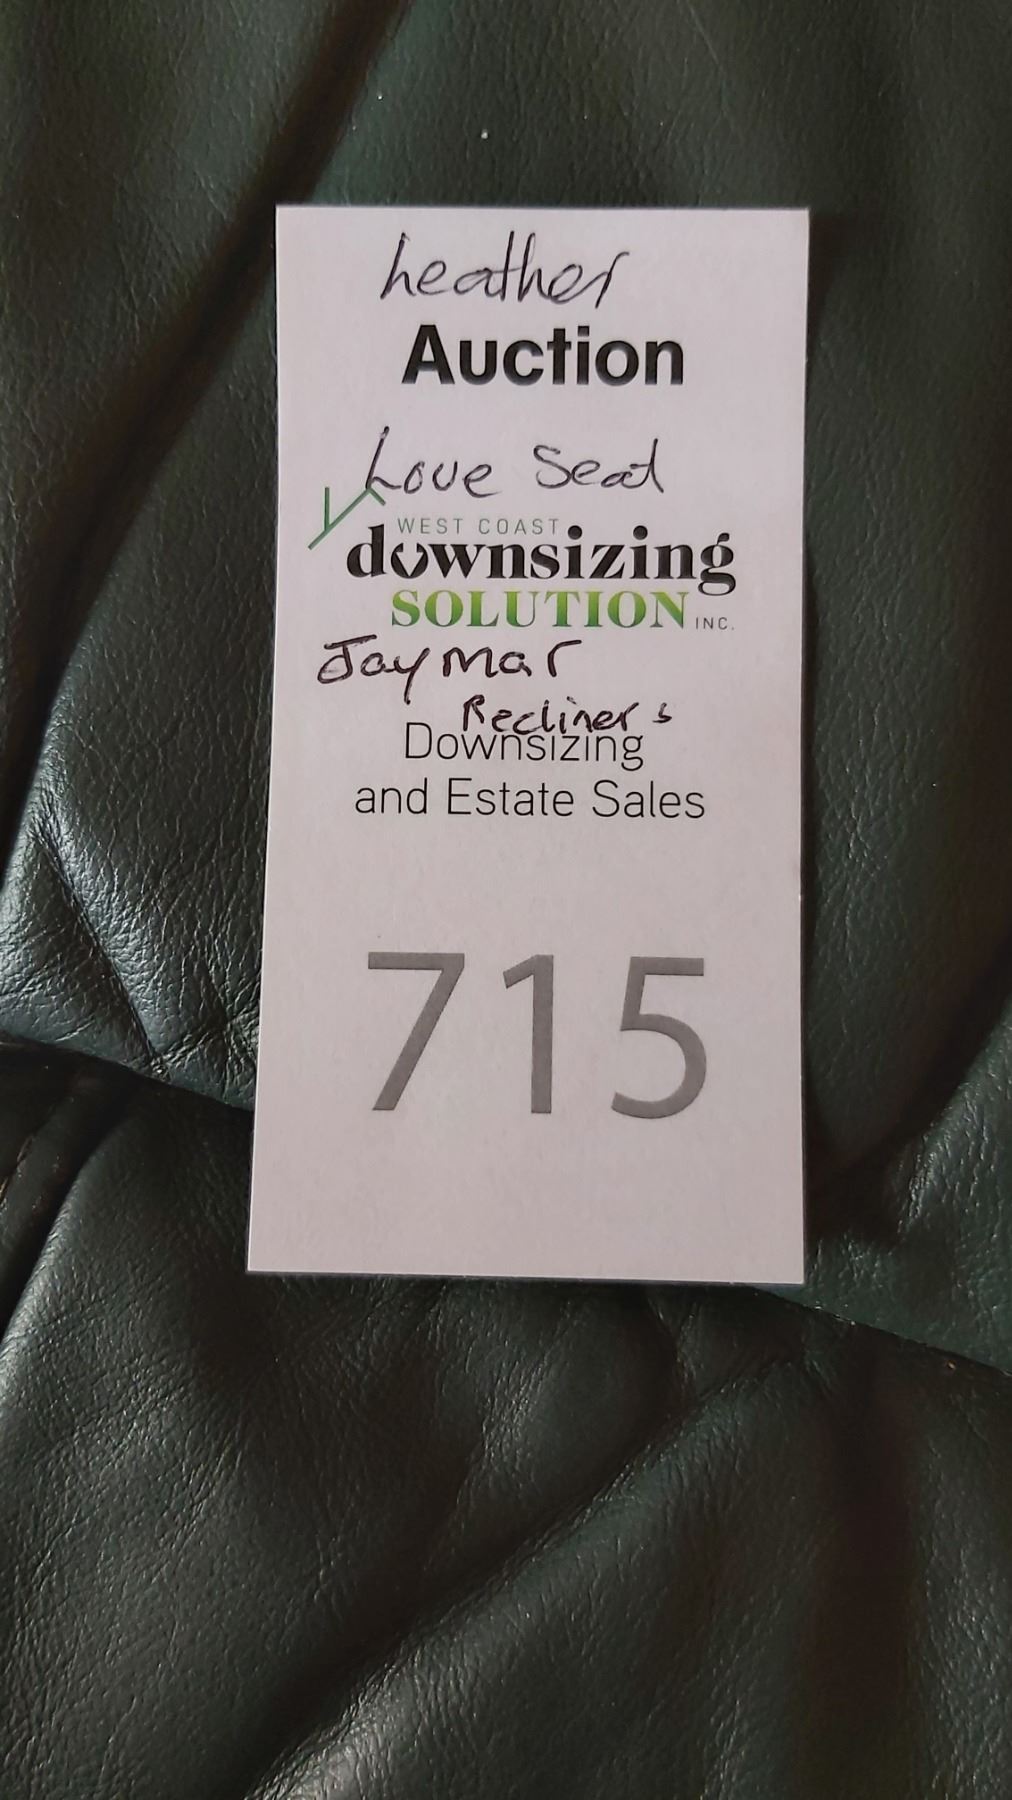 Leather
Auction
Love Seat
WEST COAST
downsizing
SOLUTION INC.
Jaymar
Recliners
Downsizing
and Estate Sales
715